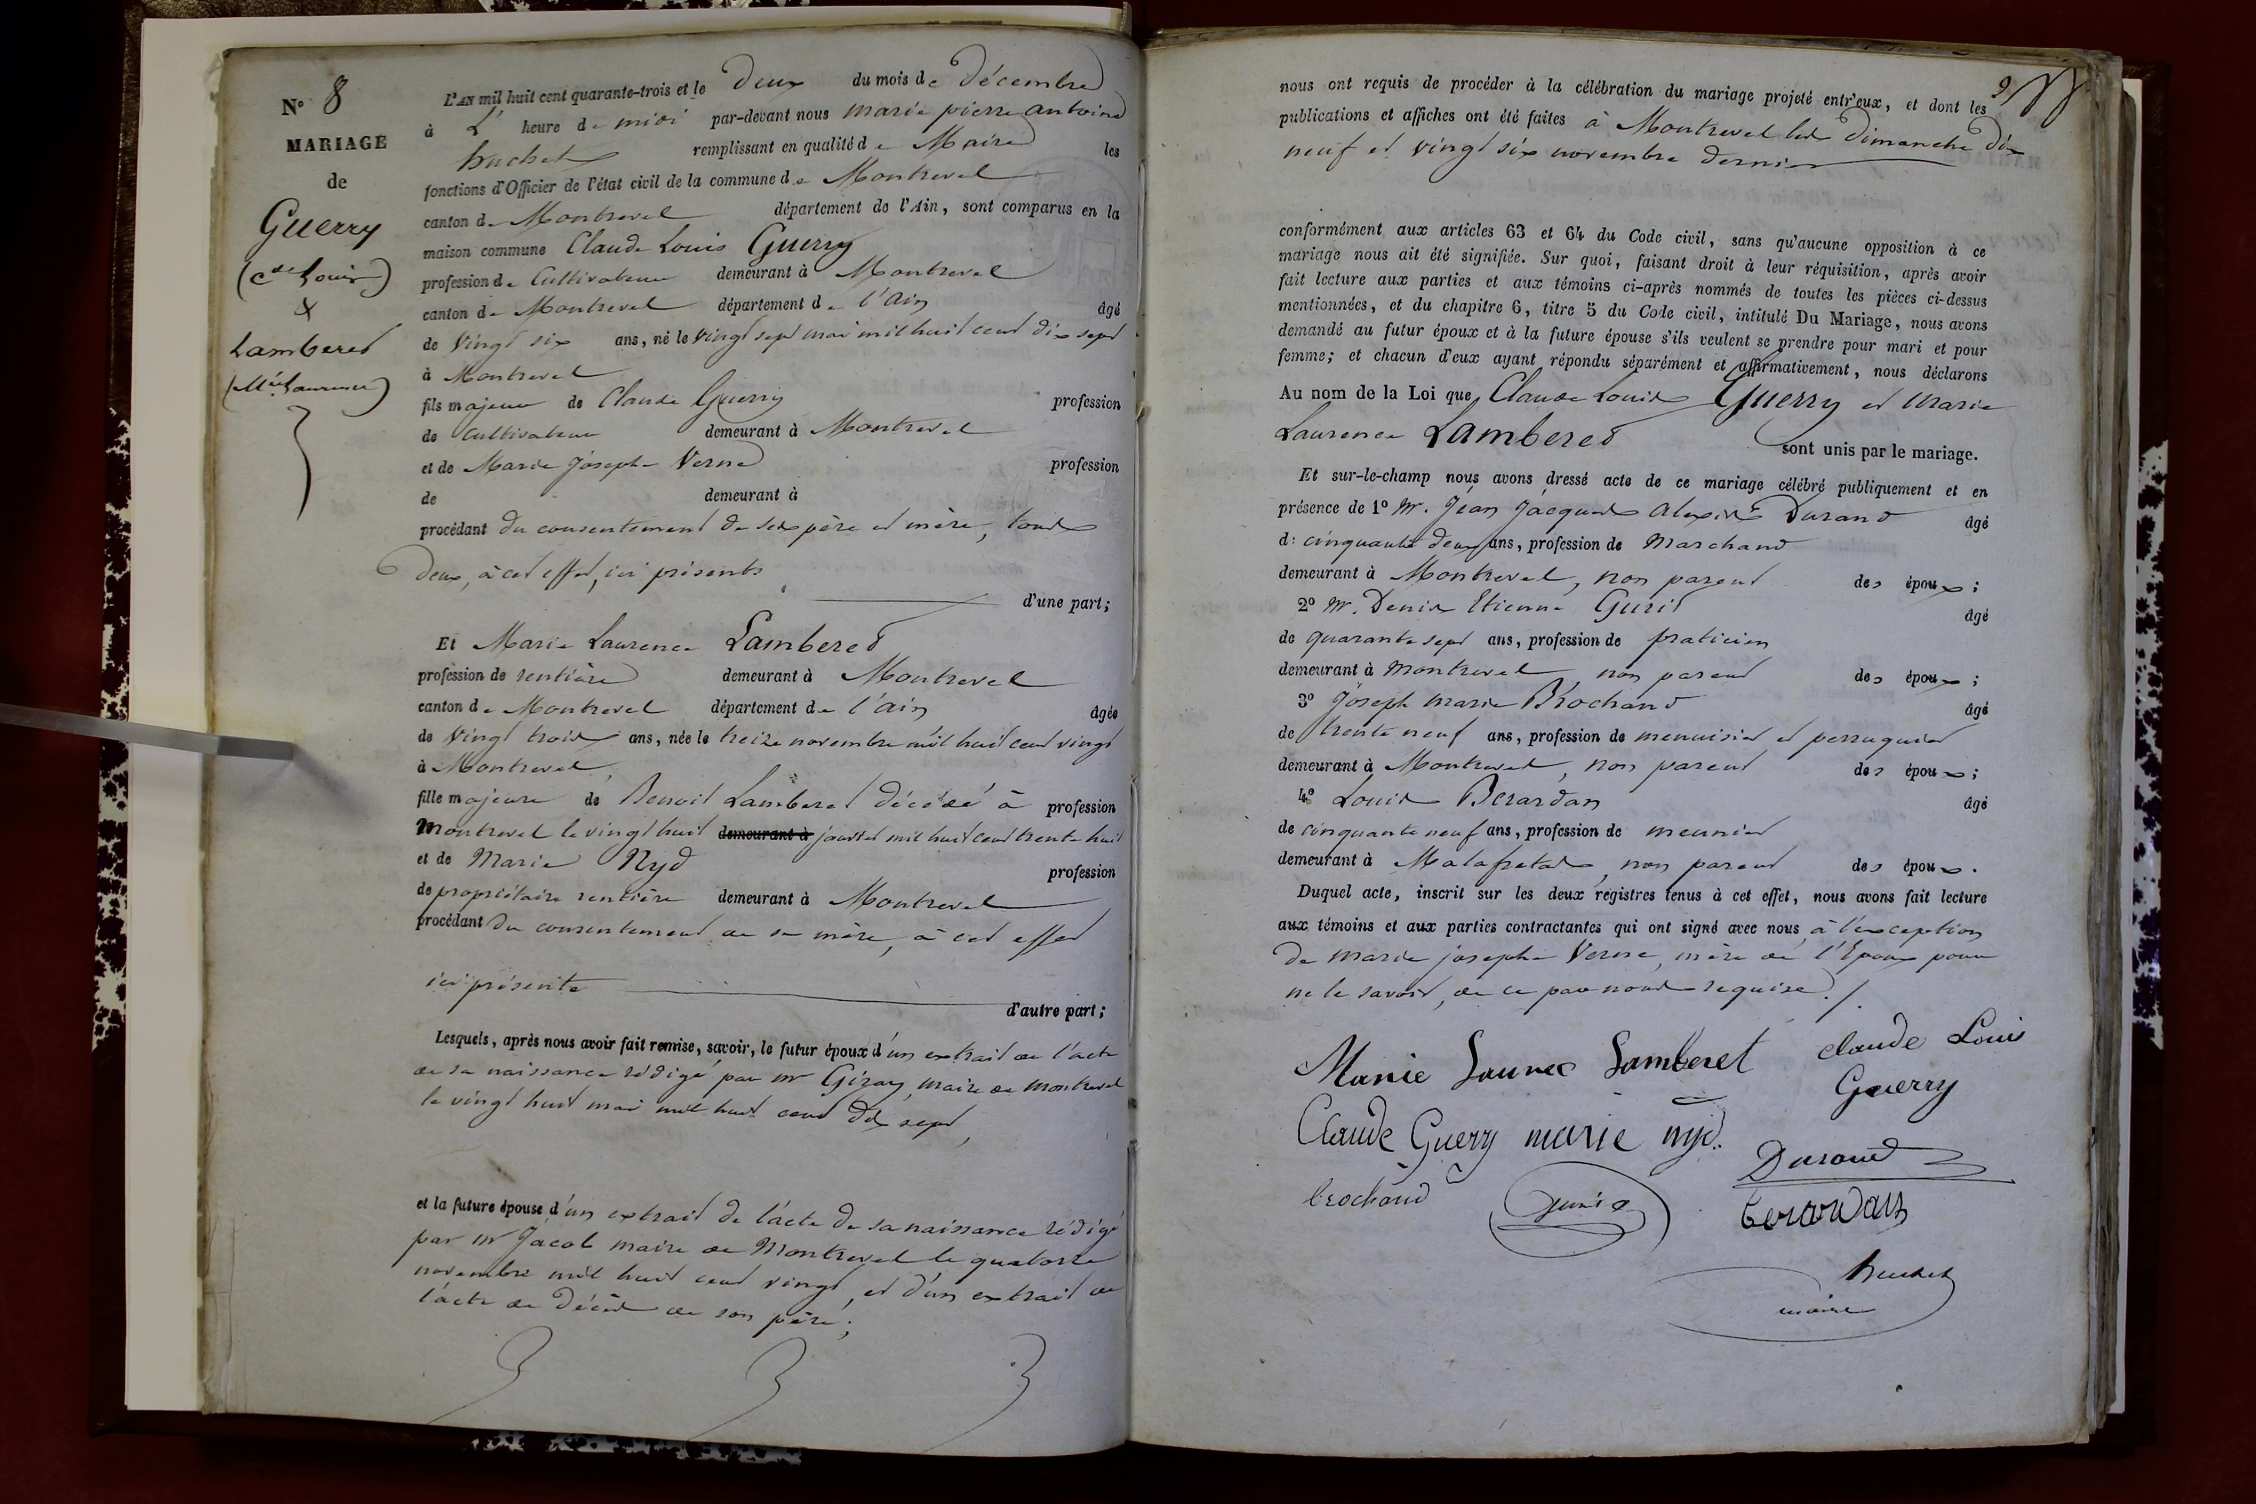 N° 8
MARIAGE
de
Guerry
(Cde Louis)
&
Lamberet
(Mie Laurence)
L'AN mil huit cent quarante-trois et le deux du mois de décembre
à L' heure de midi par-devant nous marie pierre antoine
huchet remplissant en qualité de Maire les
fonctions d'Officier de l'état civil de la commune de Montrevel
canton de Montrevel département de l'Ain, sont comparus en la
maison commune Claude Louis Guerry
profession de Cultivateur demeurant à Montrevel
canton de Montrevel département de l'ain âgé
de vingt six ans, né le vingt sept mai mil huit cent dix sept
à Montrevel
fils majeur de Claude Guerry profession
de cultivateur demeurant à Montrevel
et de Marie Josephe Verne profession
de demeurant à
procédant du consentement de ses père et mère, tous
deux, à cet effet, ici présents
d'une part;
Et Marie Laurence Lamberet
profession de rentière demeurant à Montrevel
canton de Montrevel département de l'ain âgée
de vingt trois ans, née le treize novembre mil huit cent vingt
à Montrevel,
fille majeure de Benoit Lamberet décédé à profession
Montrevel le vingt huit demeurant à janvier mil huit cent trente huit
et de Marie Nyd profession
de propriétaire rentière demeurant à Montrevel
procédant du consentement de sa mère, à cet effet
ici présente
d'autre part;
Lesquels, après nous avoir fait remise, savoir, le futur époux d'un extrait de l'acte
de sa naissance rédigé par mr Giray, maire de Montrevel
le vingt huit mai mil huit cent dix sept,
et la future épouse d'un extrait de l'acte de sa naissance rédigé
par mr Jacob maire de Montrevel le quatorze
novembre mil huit cent vingt, et d'un extrait de
l'acte de décès de son père;
9
nous ont requis de procéder à la célébration du mariage projeté entr'eux, et dont les
publications et affiches ont été faites à Montrevel les dimanche dix
neuf et vingt six novembre dernier
conformément aux articles 63 et 64 du Code civil, sans qu'aucune opposition à ce
mariage nous ait été signifiée. Sur quoi, faisant droit à leur réquisition, après avoir
fait lecture aux parties et aux témoins ci-après nommés de toutes les pièces ci-dessus
mentionnées, et du chapitre 6, titre 5 du Code civil, intitulé Du Mariage, nous avons
demandé au futur époux et à la future épouse s'ils veulent se prendre pour mari et pour
femme; et chacun d'eux ayant répondu séparément et affirmativement, nous déclarons
Au nom de la Loi que Claude Louis Guerry et Marie
Laurence Lamberet sont unis par le mariage.
Et sur-le-champ nous avons dressé acte de ce mariage célébré publiquement et en
présence de 1° Mr. Jean Jacques Alexis Durand âgé
de cinquante deux ans, profession de Marchand
demeurant à Montrevel, non parent des époux;
2° Mr. Denis Etienne Gurit âgé
de quarante sept ans, profession de praticien
demeurant à Montrevel, non parent des époux;
3° Joseph Marie Brochand âgé
de trente neuf ans, profession de menuisier et perruquier
demeurant à Montrevel, non parent des époux;
4° Louis Berardan âgé
de cinquante neuf ans, profession de meunier
demeurant à Malafretaz, non parent des époux.
Duquel acte, inscrit sur les deux registres tenus à cet effet, nous avons fait lecture
aux témoins et aux parties contractantes qui ont signé avec nous à l'exception
de Marie josephe Verne, mère de l'Epoux pour
ne le savoir, de ce par nous requise./.
Marie Laurec Lamberet Claude Louis
Guerry
Claude Guerry marie nyd.
Durand
brochand
Gurit
berardan
huchet
maire